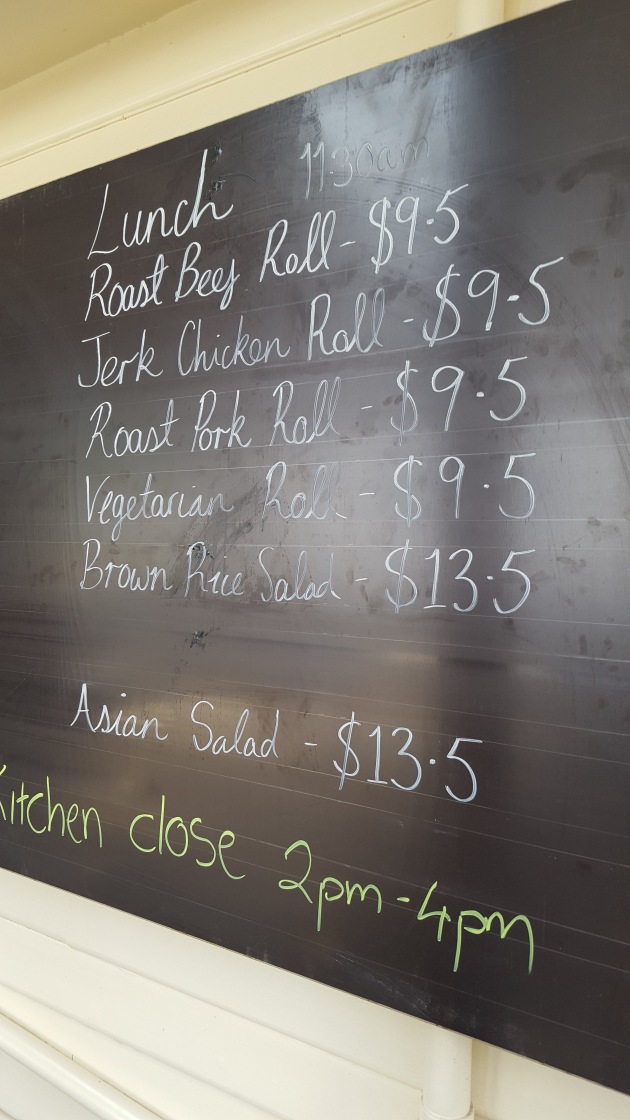 Lunch 11:30am
Roast Beef Roll - $9.5
Jerk Chicken Roll - $9.5
Roast Pork Roll - $9.5
Vegetarian Roll - $9.5
Brown Rice Salad - $13.5
Asian Salad - $13.5
Kitchen close 2pm-4pm